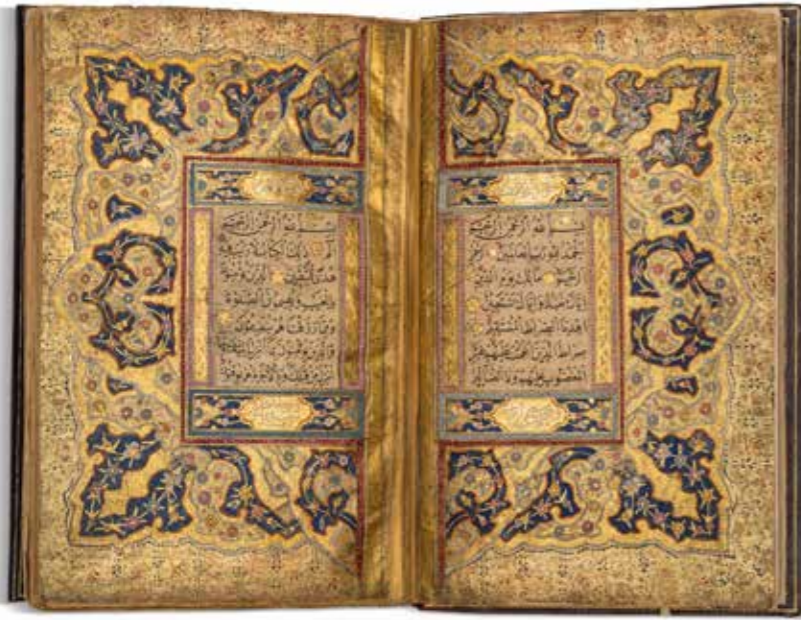 بسم الله الرحمن الرحيم
الحمد لله رب العالمين الرحمن
الرحيم مالك يوم الدين
اياك نعبد واياك نستعين
اهدنا الصراط المستقيم
صراط الذين انعمت عليهم غير
المغضوب عليهم ولا الضالين
بسم الله الرحمن الرحيم
الم ذلك الكتاب لا ريب فيه
هدى للمتقين الذين يؤمنون
بالغيب ويقيمون الصلوة
ومما رزقناهم ينفقون
والذين يؤمنون بما انزل اليك وما
انزل من قبلك وبالاخرة هم يوقنون